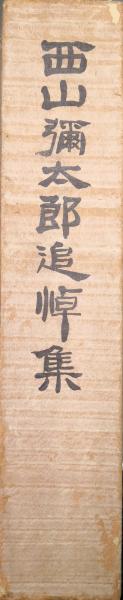 西山彌太郎追悼集